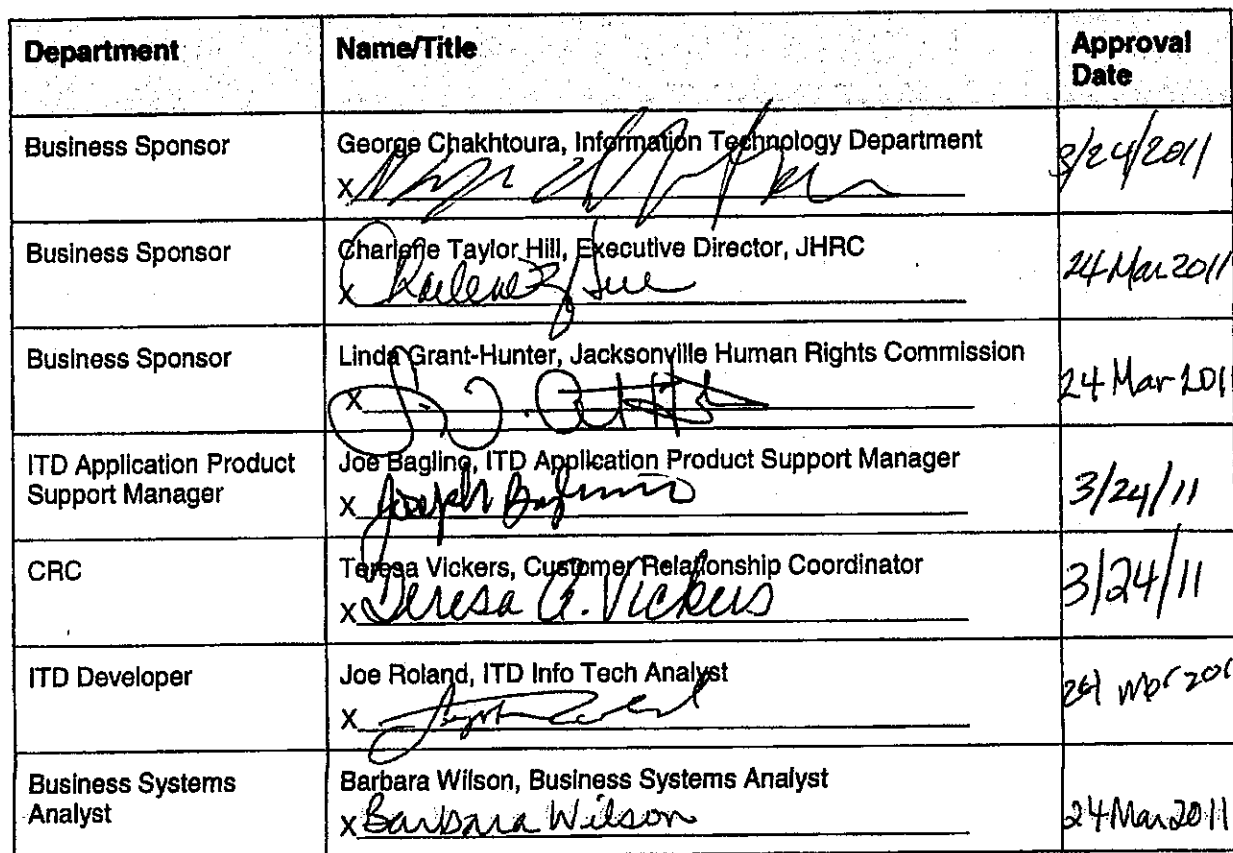 Department Name/Title Approval
Date
Business Sponsor George Chakhtoura, Information Technology Department
X 3/24/2011
Business Sponsor Charlene Taylor Hill, Executive Director, JHRC
X 24 Mar 2011
Business Sponsor Linda Grant-Hunter, Jacksonville Human Rights Commission
X 24 Mar 2011
ITD Application Product Joe Baglino, ITD Application Product Support Manager
Support Manager X Joseph Baglino 3/24/11
CRC Teresa Vickers, Customer Relationship Coordinator
X Teresa A. Vickers 3/24/11
ITD Developer Joe Roland, ITD Info Tech Analyst
X 24 Mar 201
Business Systems Barbara Wilson, Business Systems Analyst
Analyst X Barbara Wilson 24 Mar 2011